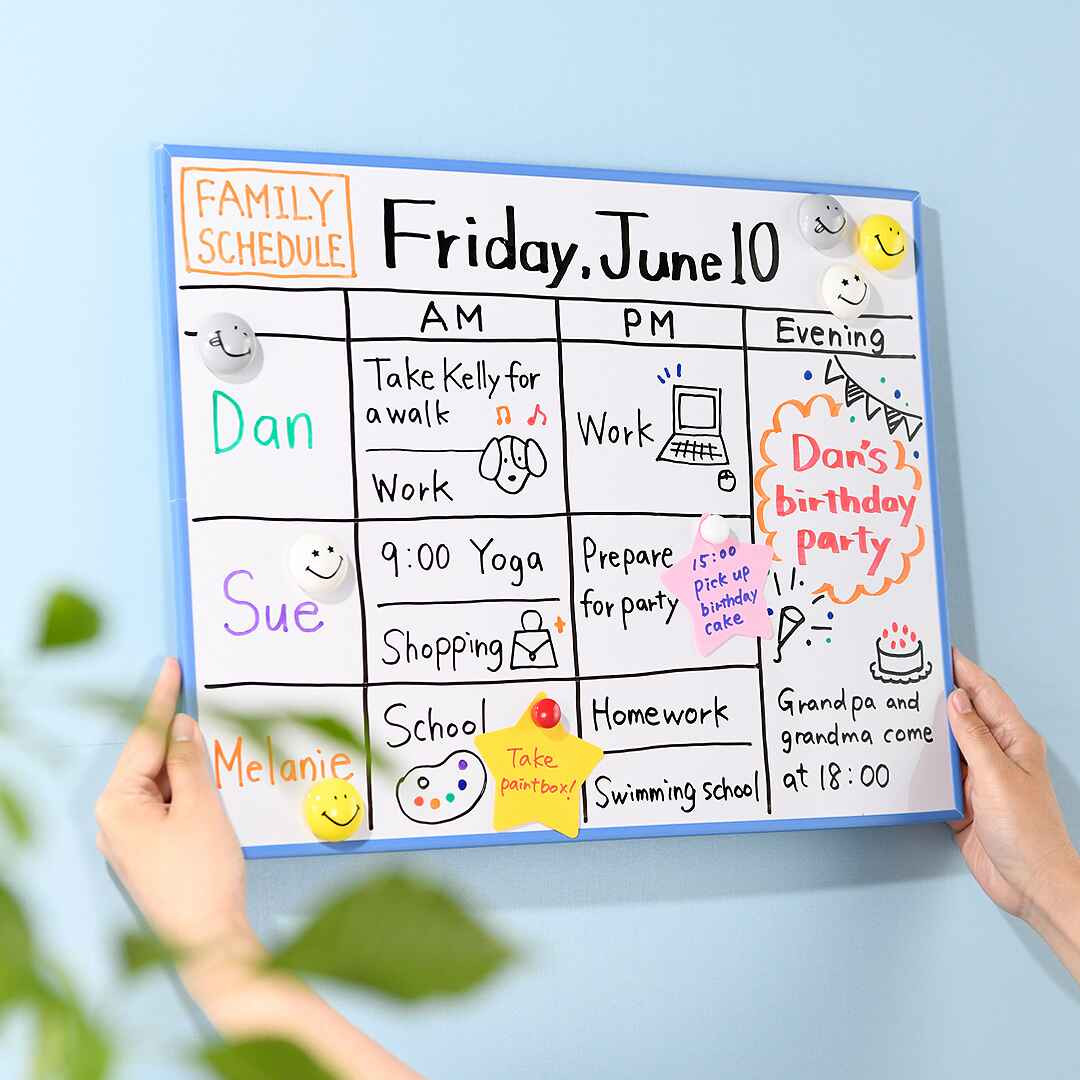 FAMILY
SCHEDULE
Friday, June 10
AM
PM
Evening
Dan
Take Kelly for
a walk
Work
Work
Dan's
birthday
party
Sue
9:00 Yoga
Shopping
Prepare
for party
15:00
pick up
birthday
cake
Melanie
School
Take
paintbox!
Homework
Swimming school
Grandpa and
grandma come
at 18:00